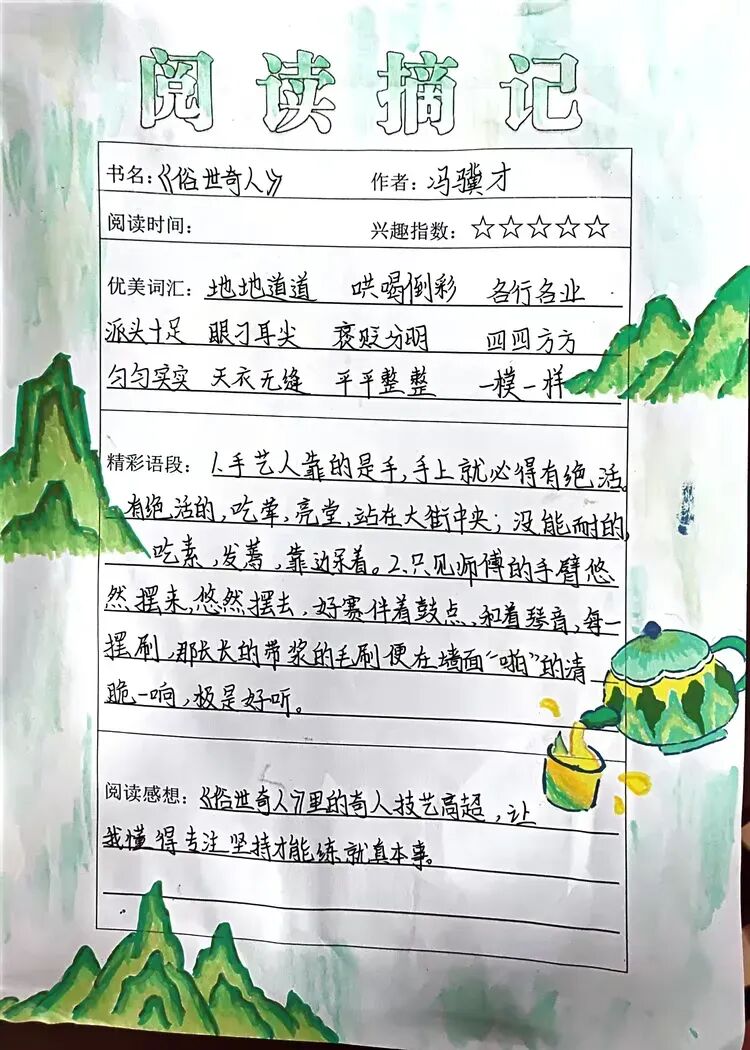 阅读摘记
书名：《俗世奇人》 作者：冯骥才
阅读时间： 兴趣指数：☆☆☆☆☆
优美词汇：地地道道 哄喝倒彩 各行各业
派头十足 眼刁耳尖 褒贬分明 四四方方
匀匀实实 天衣无缝 平平整整 一模一样
精彩语段：1.手艺人靠的是手，手上就必得有绝活。
有绝活的，吃荤，亮堂，站在大街中央；没能耐的，
吃素，发蔫，靠边呆着。2.只见师傅的手臂悠
然摆来，悠然摆去，好赛伴着鼓点，和着琴音，每一
摆刷，那长长的带浆的毛刷便在墙面“啪”的清
脆一响，极是好听。
阅读感想：《俗世奇人》里的奇人技艺高超，让
我懂得专注坚持才能练就真本事。